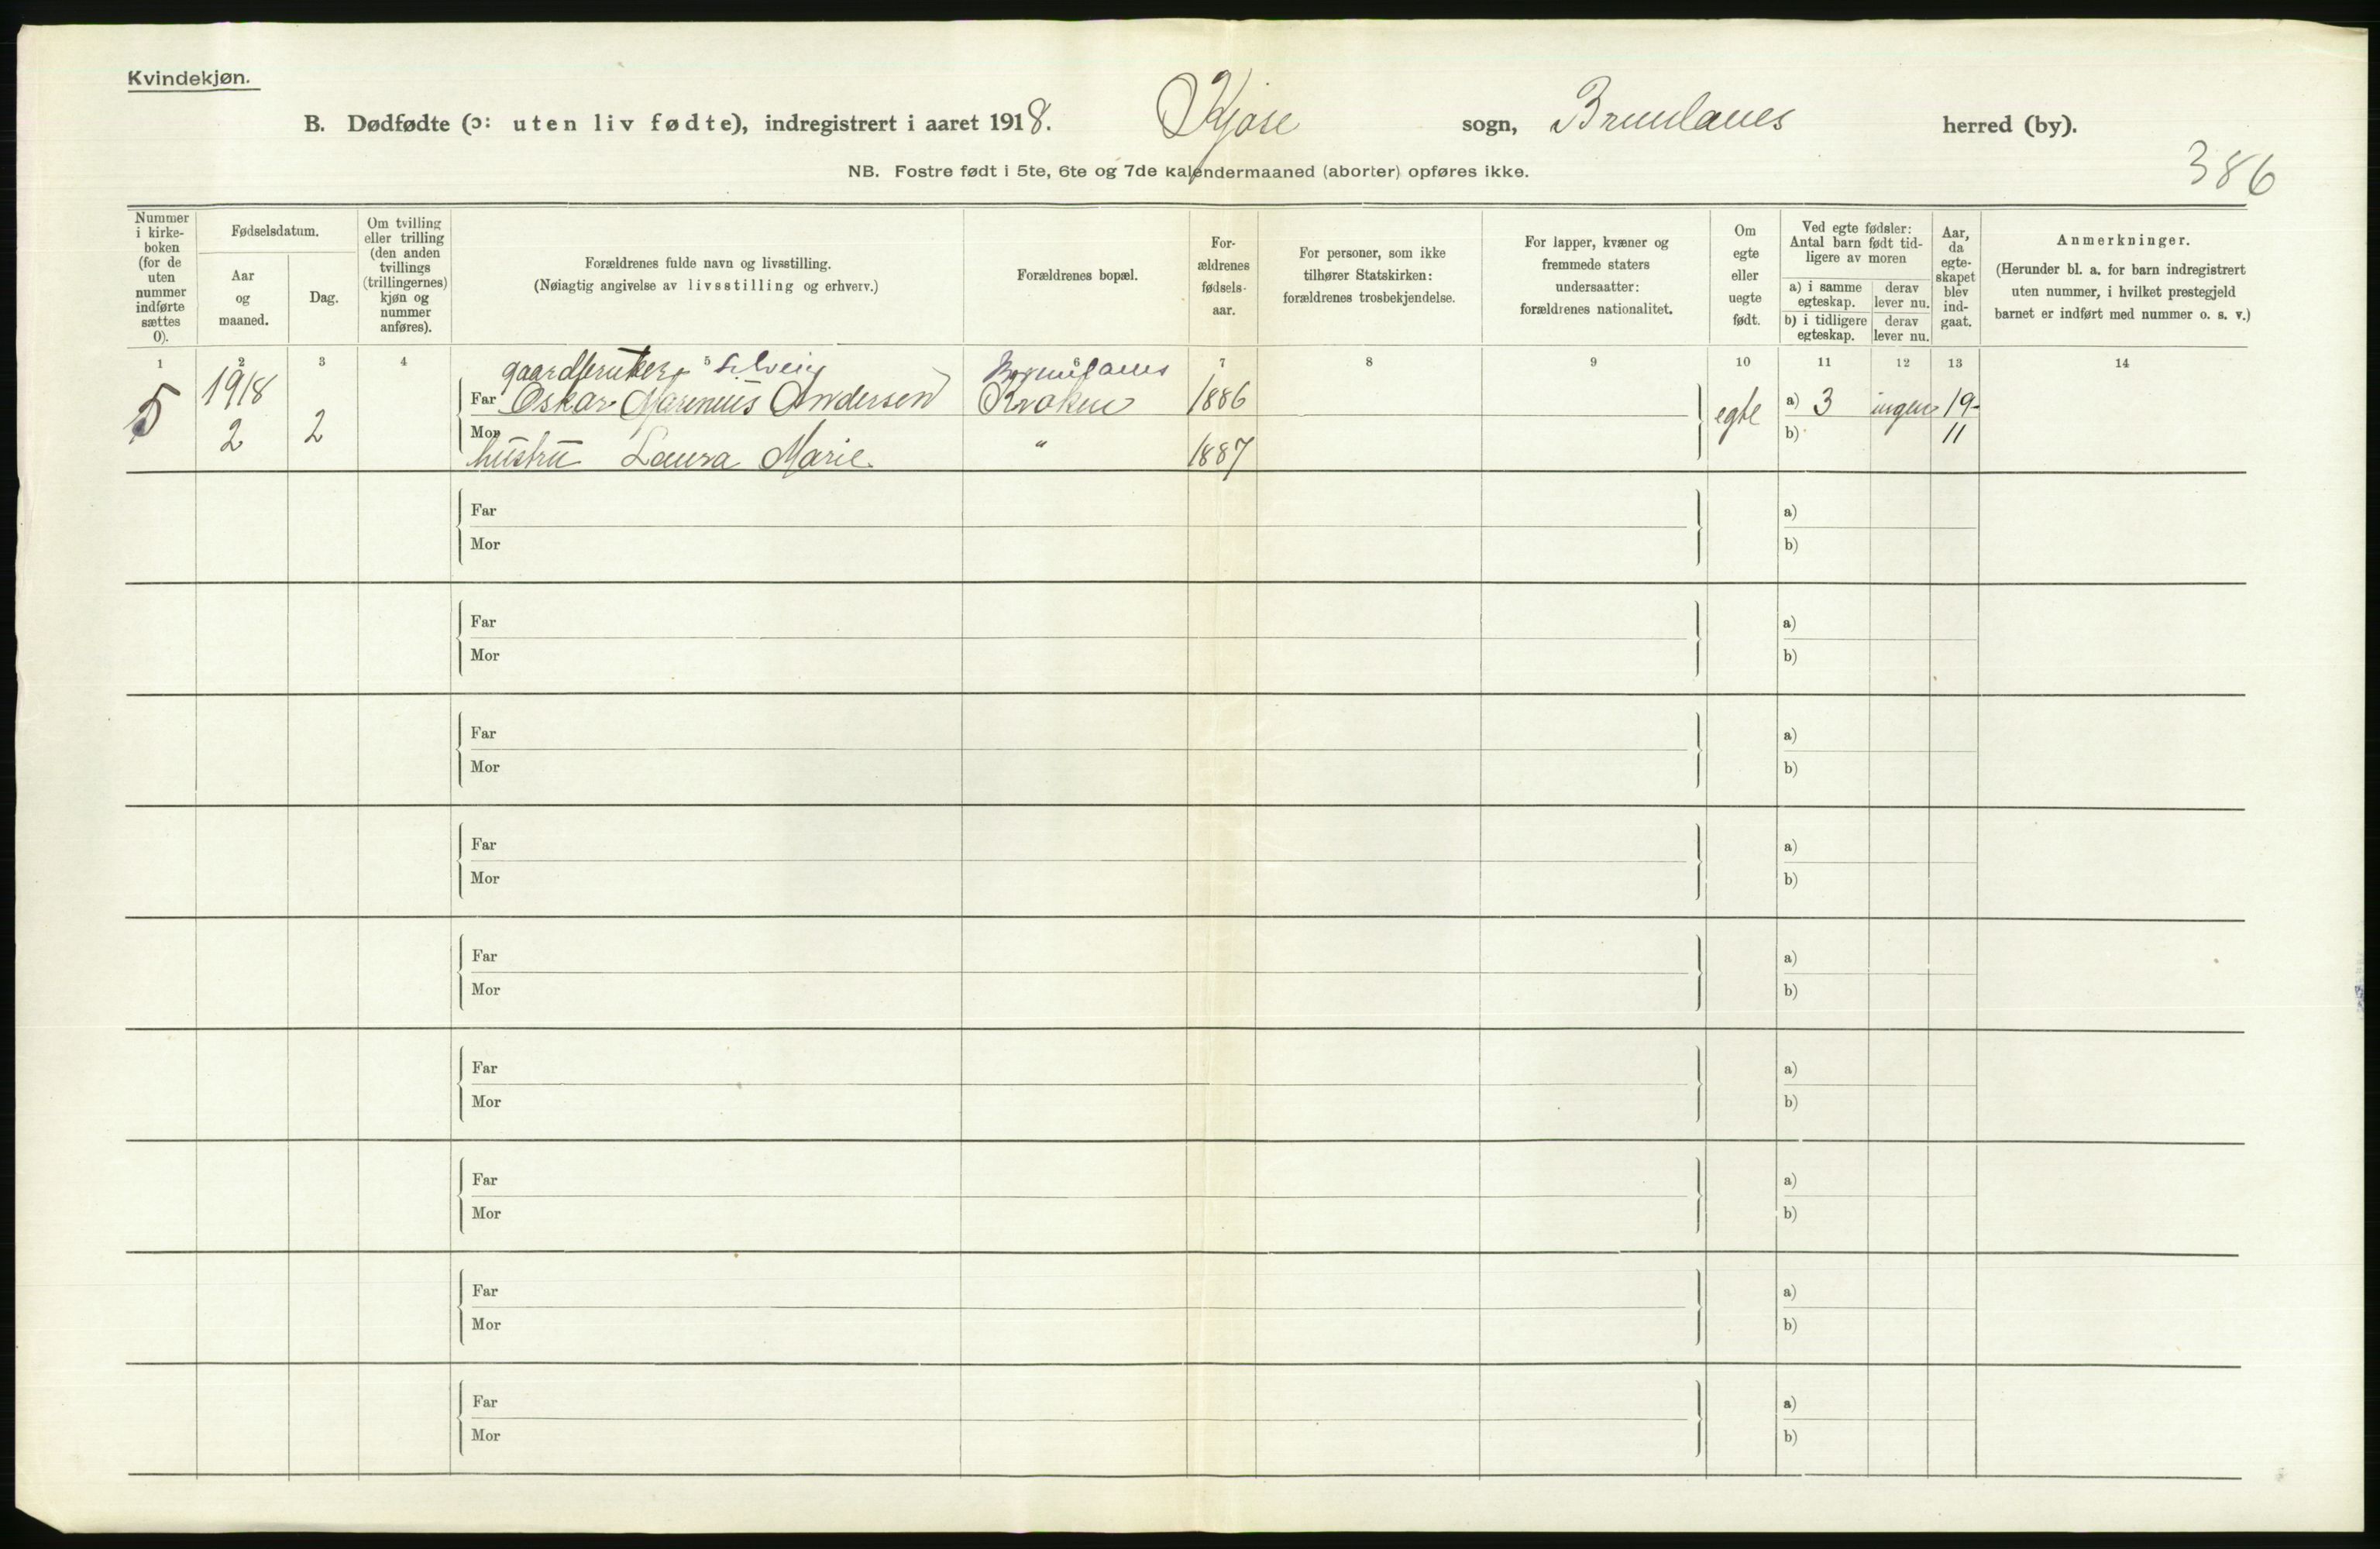 Kvindekjøn.
B. Dødfødte (ɔ: uten liv fødte), indregistrert i aaret 1918. Kjose sogn, Brunlanes herred (by).
NB. Fostre født i 5te, 6te og 7de kalendermaaned (aborter) opføres ikke.
386
Nummer i kirke-boken (for de uten nummer indførte sættes 0).
Fødselsdatum.
Aar og maaned.
Dag.
Om tvilling eller trilling (den anden tvillings (trillingernes) kjøn og nummer anføres).
Forældrenes fulde navn og livsstilling.
(Nøiagtig angivelse av livsstilling og erhverv.)
Forældrenes bopæl.
For-ældrenes fødsels-aar.
For personer, som ikke tilhører Statskirken: forældrenes trosbekjendelse.
For lapper, kvæner og fremmede staters undersaatter: forældrenes nationalitet.
Om egte eller uegte født.
Ved egte fødsler: Antal barn født tid-ligere av moren
a) i samme egteskap.
derav lever nu.
b) i tidligere egteskap.
derav lever nu.
Aar, da egte-skapet blev ind-gaat.
Anmerkninger.
(Herunder bl. a. for barn indregistrert uten nummer, i hvilket prestegjeld barnet er indført med nummer o. s. v.)
1 2 3 4 5 6 7 8 9 10 11 12 13 14
gaardbruker selveier Brunlanes
5 1918 Far Oskar Marenius Andersen Kroken 1886 egte a) 3 ingen 19-
2 2 Mor b) 11
hustru Laura Marie " 1887
Far a)
Mor b)
Far a)
Mor b)
Far a)
Mor b)
Far a)
Mor b)
Far a)
Mor b)
Far a)
Mor b)
Far a)
Mor b)
Far a)
Mor b)
Far a)
Mor b)